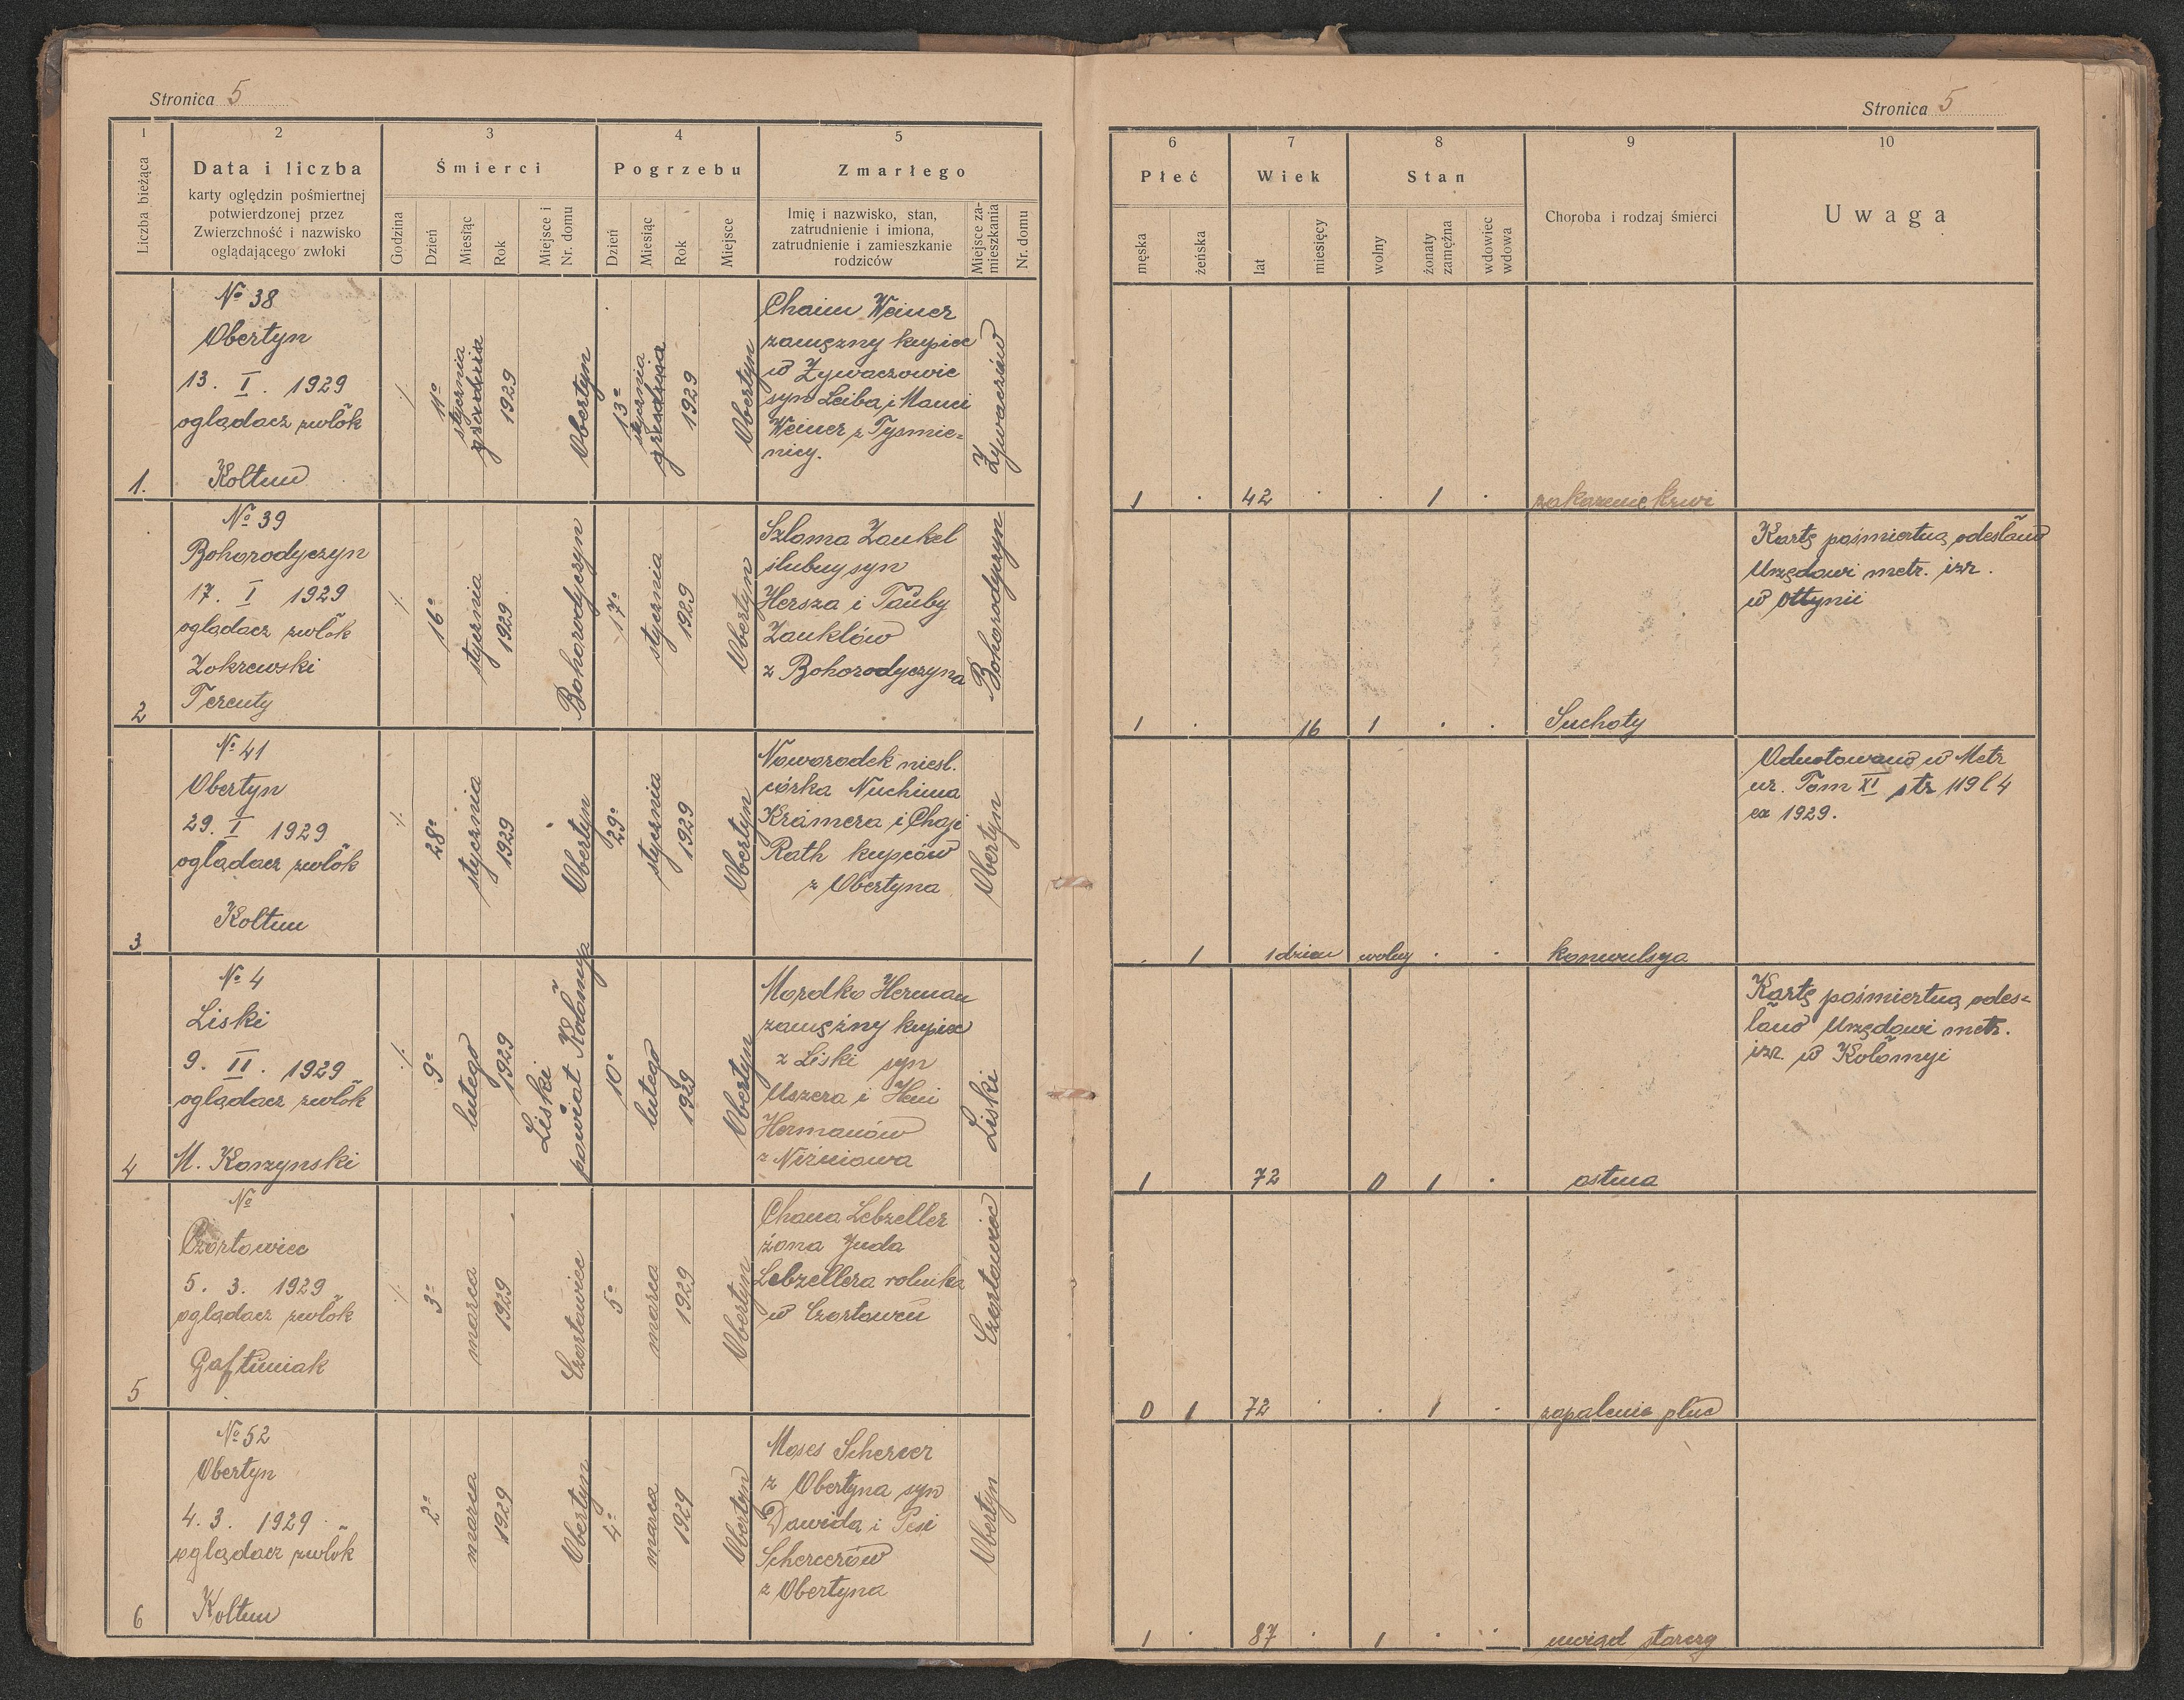 Stronica 5
1 2 3 4 5
Liczba bieżąca
Data i liczba
karty oględzin pośmiertnej
potwierdzonej przez
Zwierzchność i nazwisko
oglądającego zwłoki
Śmierci
Godzina
Dzień
Miesiąc
Rok
Miejsce i
Nr. domu
Pogrzebu
Dzień
Miesiąc
Rok
Miejsce
Zmarłego
Imię i nazwisko, stan,
zatrudnienie i imiona,
zatrudnienie i zamieszkanie
rodziców
Miejsce za-
mieszkania
Nr. domu
1.
No 38
Obertyn
13. I. 1929
oglądacz zwłok
Koltun
11o
stycznia
grudnia
1929
Obertyn
13o
stycznia
grudnia
1929
Obertyn
Chaim Weiner
zamężny kupiec
w Żywaczowie
syn Leiba i Manci
Weiner z Tysmie=
nicy.
Żywaczów
2
No 39
Bohorodyczyn
17. I 1929
oglądacz zwłok
Zokrewski
Terenty
16o
stycznia
1929
Bohorodyczyn
17o
stycznia
1929
Obertyn
Szloma Zankel
ślubny syn
Hersza i Tauby
Zanklów
z Bohorodyczyna
Bohorodyczyn
3
No 41
Obertyn
29. I 1929
oglądacz zwłok
Koltun
28o
stycznia
1929
Obertyn
29o
stycznia
1929
Obertyn
Noworodek niesl.
córka Nuchima
Kramera i Chaji
Rath kupców
z Obertyna
Obertyn
4
No 4
Liski
9. II. 1929
oglądacz zwłok
M. Korzynski
9o
lutego
1929
Liski
powiat Kołomyja
10o
lutego
1929
Obertyn
Mordko Herman
zamężny kupiec
z Liski syn
Uszera i Heni
Hermanów
z Niżniowa
Liski
5
No
Czortowiec
5. 3. 1929
oglądacz zwłok
Gaftuniak
3o
marca
1929
Czortowiec
5o
marca
1929
Obertyn
Chana Lebzeller
żona Juda
Lebzellera rolnika
w Czortowcu
Czortowiec
6
No 52
Obertyn
4. 3. 1929
oglądacz zwłok
Koltun
2o
marca
1929
Obertyn
4o
marca
1929
Obertyn
Moses Scherer
z Obertyna syn
Dawida i Pesi
Schererów
z Obertyna
Obertyn
Stronica 5
6 7 8 9 10
Płeć
męska
żeńska
Wiek
lat
miesięcy
Stan
wolny
żonaty
zamężna
wdowiec
wdowa
Choroba i rodzaj śmierci
Uwaga
1 . 42 . . 1 . zakażenie krwi
Kartę pośmiertną odesłano
Urzędowi metr. izr.
w Ottynii
1 . 16 1 . . Suchoty
Odnotowano w Metr
ur. Tom XI str 119 l 4
ex 1929.
. 1 1 dzień wolny . . konwulsya
Kartę pośmiertną odes=
łano Urzędowi metr.
izr. w Kołomyi
1 72 0 1 . astma
0 1 72 . . 1 . zapalenie płuc
1 . 87 . 1 . . uwiąd starczy